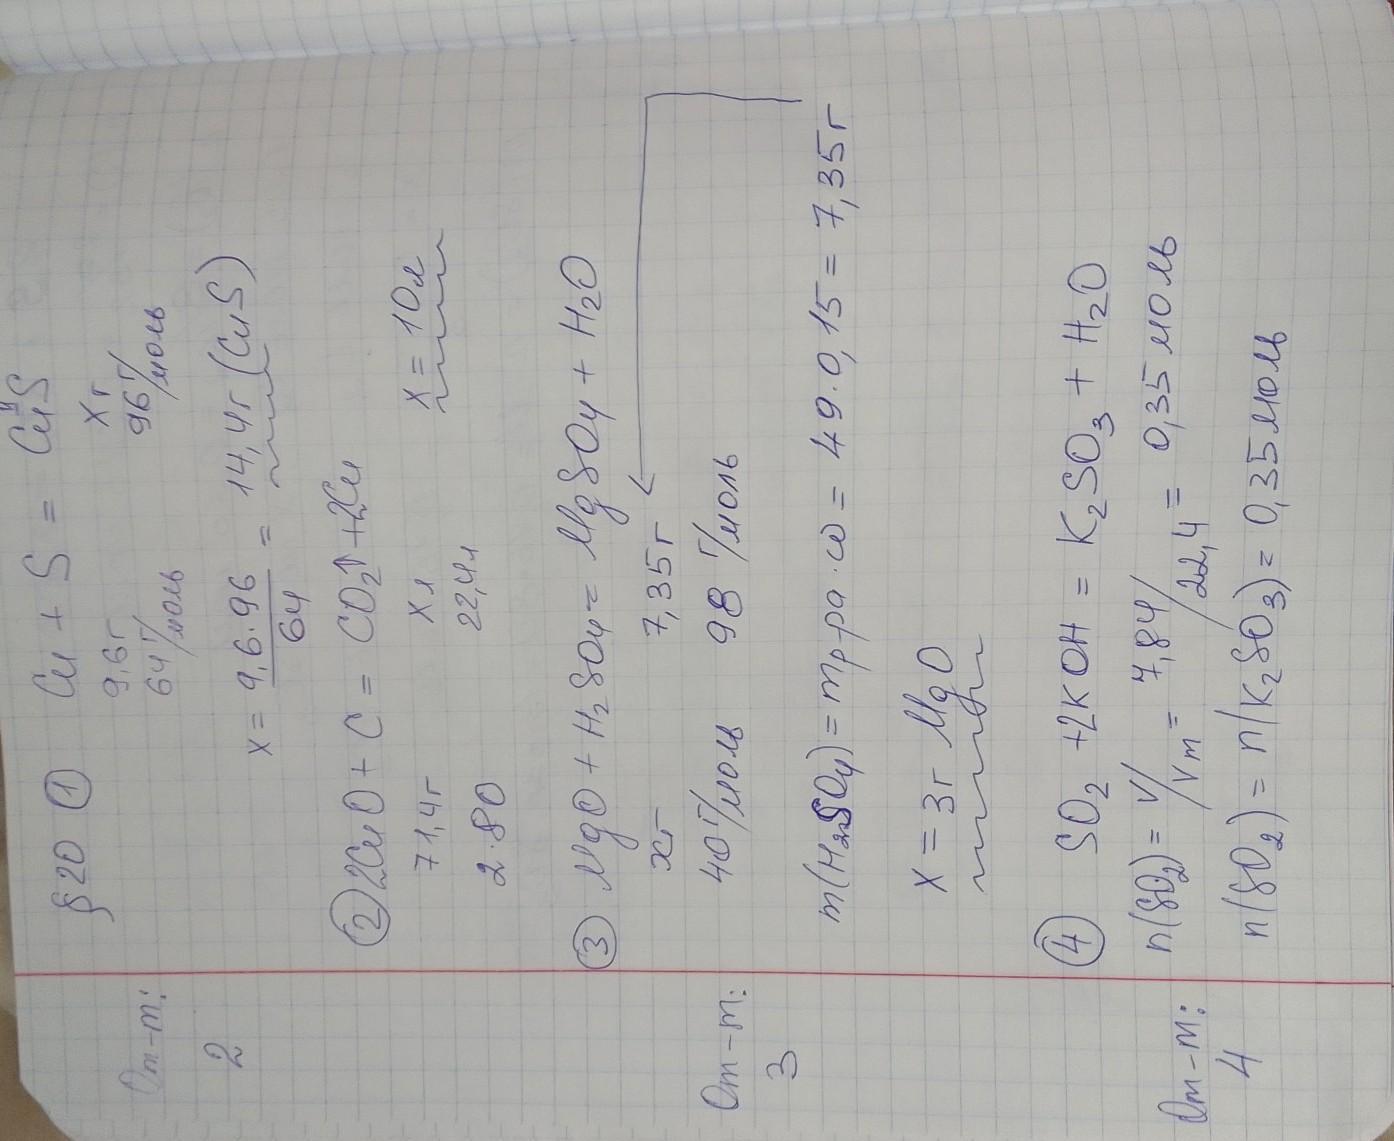 §20 ① Cu + S = CuS
9,6г xг
64г/моль 96г/моль
x = 9,6·96/64 = 14,4г (CuS)
② 2CuO + C = CO₂↑ + 2Cu
71,4г xл x = 10л
2·80 22,4л
③ MgO + H₂SO₄ = MgSO₄ + H₂O
xг 7,35г
40г/моль 98 г/моль
m(H₂SO₄) = mр-ра · ω = 49·0,15 = 7,35г
x = 3г MgO
④ SO₂ + 2KOH = K₂SO₃ + H₂O
n(SO₂) = V/Vm = 7,84/22,4 = 0,35 моль
n(SO₂) = n(K₂SO₃) = 0,35 моль
От-т:
2
От-т:
3
От-т:
4